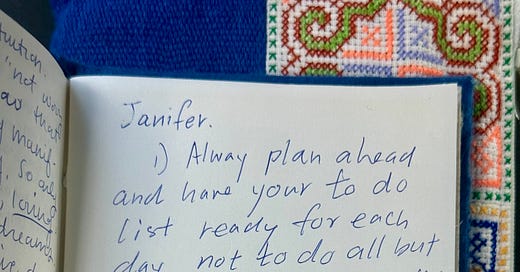 tuition.
"not
that
manif-
So
loving
dreams
Janifer.
1) Alway plan ahead
and have your to do
list ready for each
day not to do all but